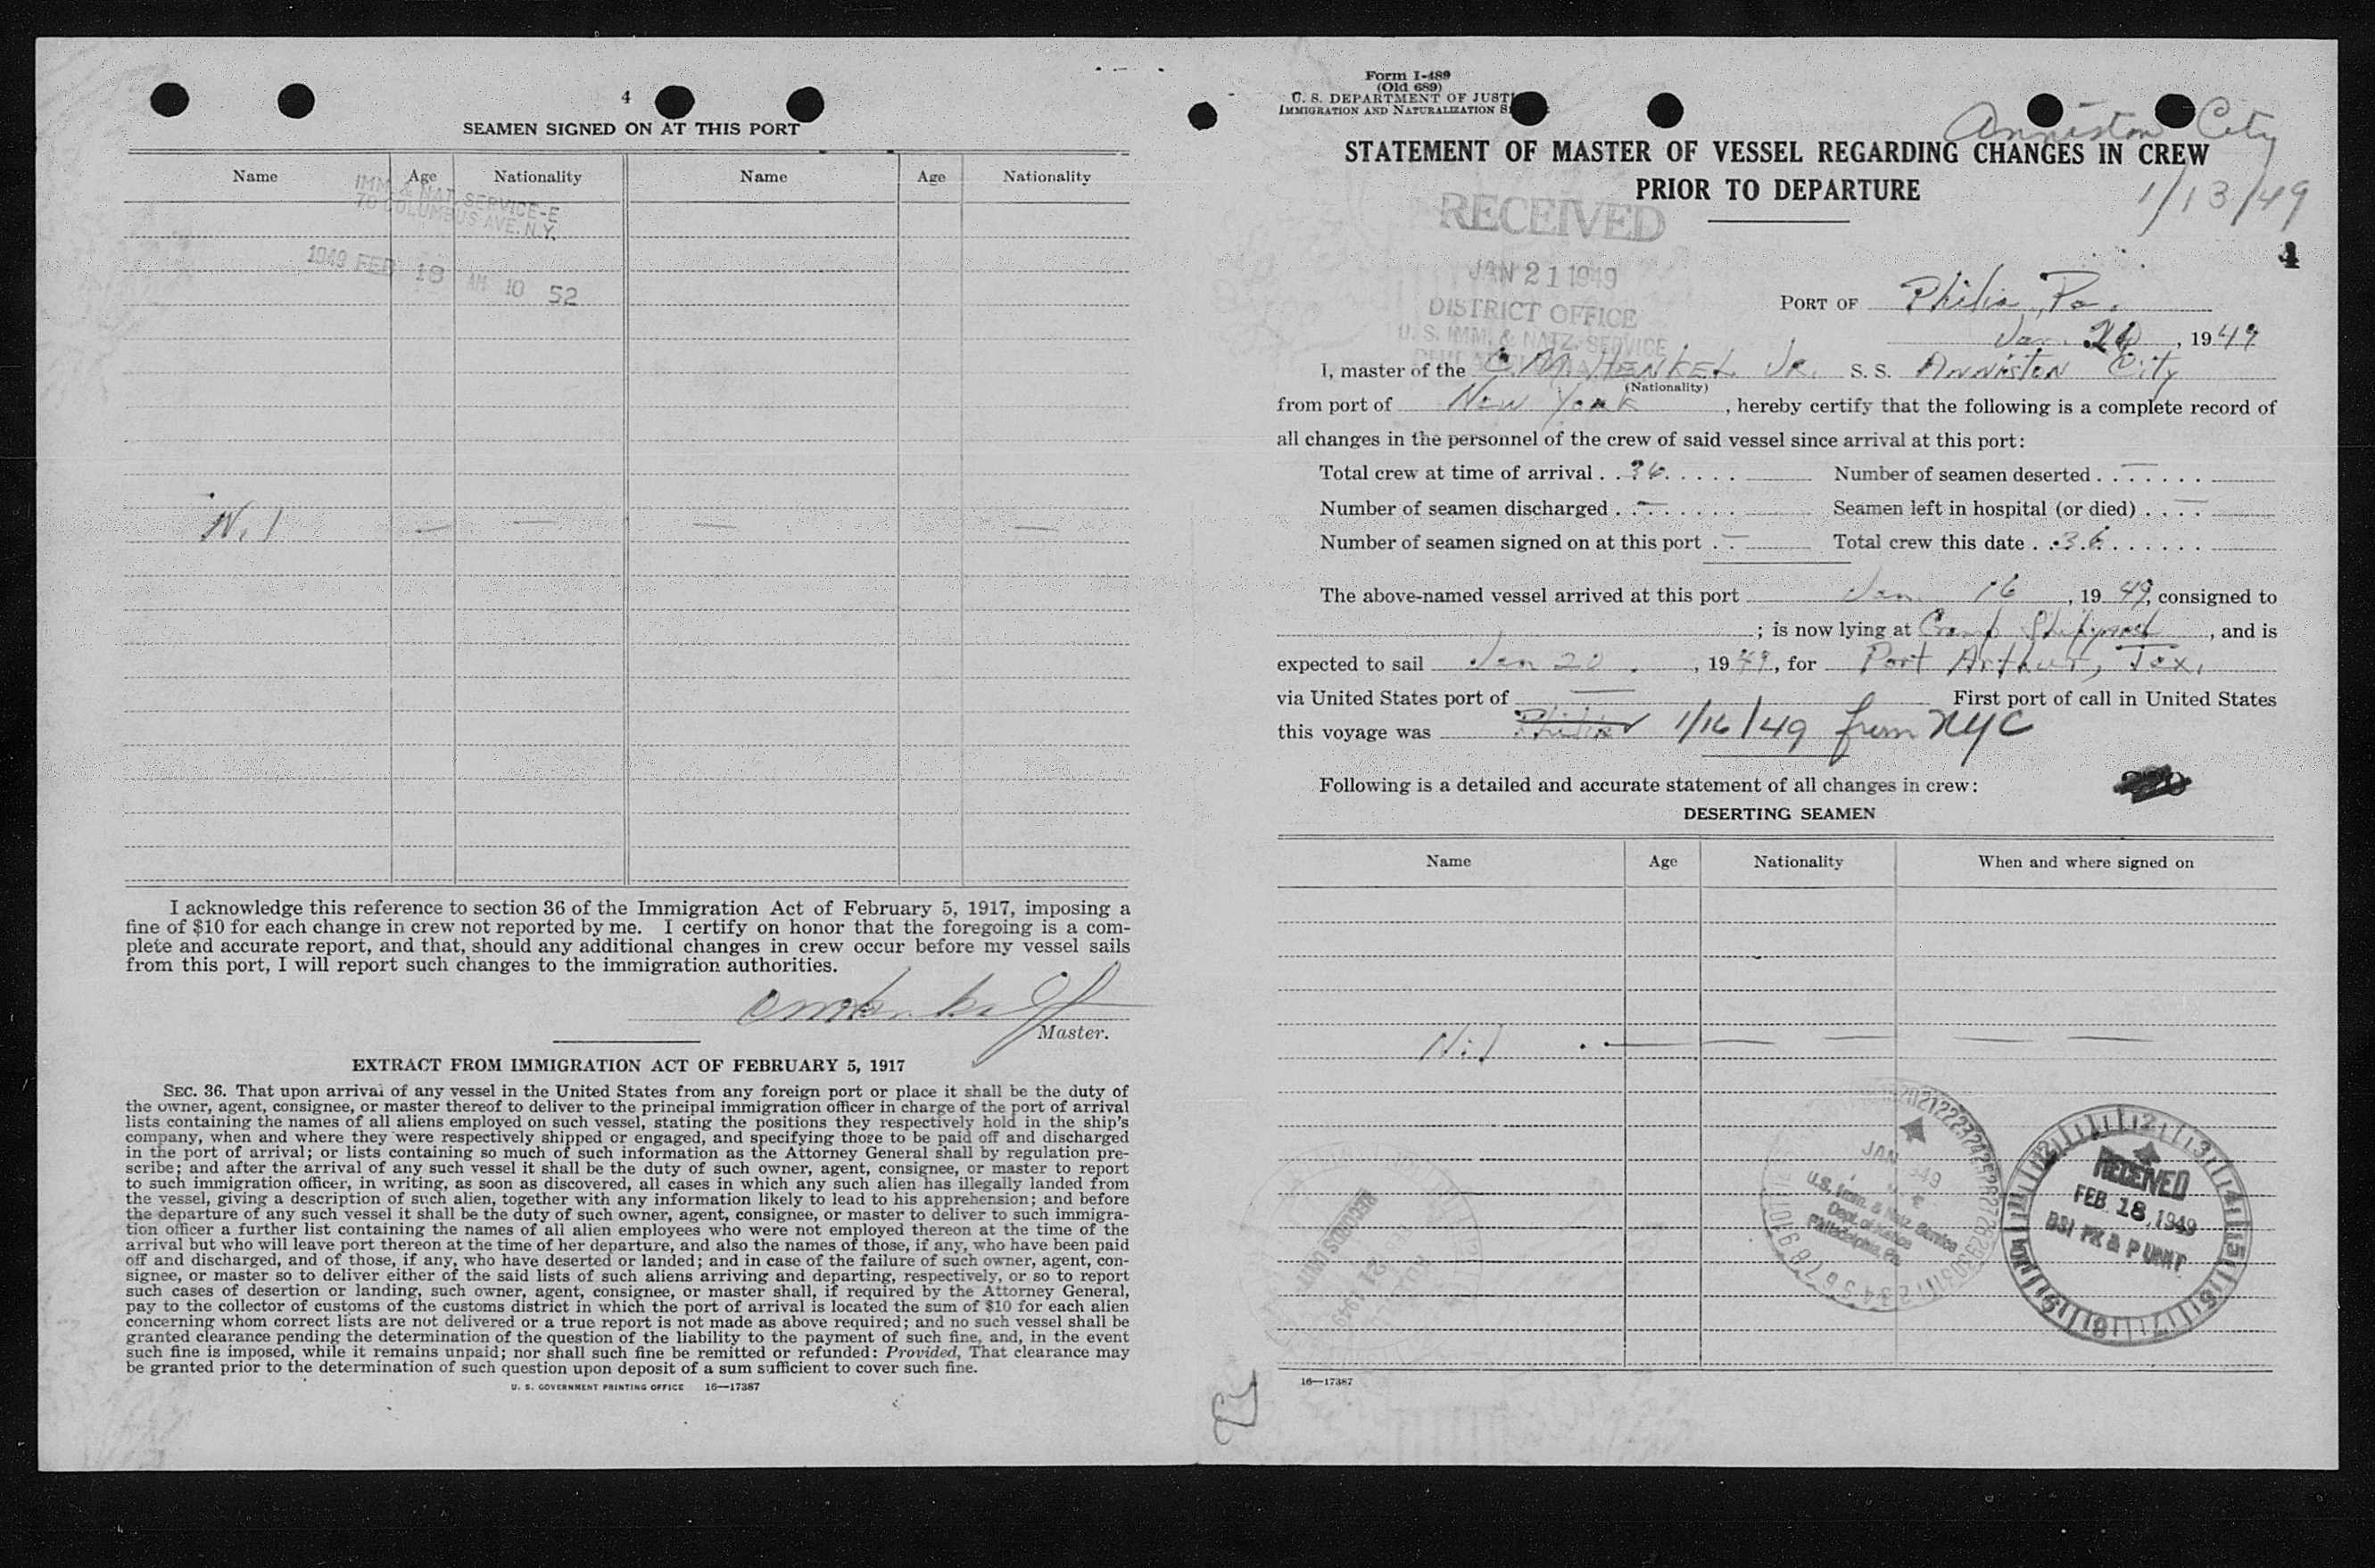 4
SEAMEN SIGNED ON AT THIS PORT
Name Age Nationality Name Age Nationality
IMM. & NAT. SERVICE-E
70 COLUMBUS AVE. N.Y.
1949 FEB 18 AM 10 52
Nil — — — —
I acknowledge this reference to section 36 of the Immigration Act of February 5, 1917, imposing a
fine of $10 for each change in crew not reported by me. I certify on honor that the foregoing is a com-
plete and accurate report, and that, should any additional changes in crew occur before my vessel sails
from this port, I will report such changes to the immigration authorities.
Master.
EXTRACT FROM IMMIGRATION ACT OF FEBRUARY 5, 1917
SEC. 36. That upon arrival of any vessel in the United States from any foreign port or place it shall be the duty of
the owner, agent, consignee, or master thereof to deliver to the principal immigration officer in charge of the port of arrival
lists containing the names of all aliens employed on such vessel, stating the positions they respectively hold in the ship's
company, when and where they were respectively shipped or engaged, and specifying those to be paid off and discharged
in the port of arrival; or lists containing so much of such information as the Attorney General shall by regulation pre-
scribe; and after the arrival of any such vessel it shall be the duty of such owner, agent, consignee, or master to report
to such immigration officer, in writing, as soon as discovered, all cases in which any such alien has illegally landed from
the vessel, giving a description of such alien, together with any information likely to lead to his apprehension; and before
the departure of any such vessel it shall be the duty of such owner, agent, consignee, or master to deliver to such immigra-
tion officer a further list containing the names of all alien employees who were not employed thereon at the time of the
arrival but who will leave port thereon at the time of her departure, and also the names of those, if any, who have been paid
off and discharged, and of those, if any, who have deserted or landed; and in case of the failure of such owner, agent, con-
signee, or master so to deliver either of the said lists of such aliens arriving and departing, respectively, or so to report
such cases of desertion or landing, such owner, agent, consignee, or master shall, if required by the Attorney General,
pay to the collector of customs of the customs district in which the port of arrival is located the sum of $10 for each alien
concerning whom correct lists are not delivered or a true report is not made as above required; and no such vessel shall be
granted clearance pending the determination of the question of the liability to the payment of such fine, and, in the event
such fine is imposed, while it remains unpaid; nor shall such fine be remitted or refunded: Provided, That clearance may
be granted prior to the determination of such question upon deposit of a sum sufficient to cover such fine.
U. S. GOVERNMENT PRINTING OFFICE 16—17387
Form I-489
(Old 689)
U. S. DEPARTMENT OF JUSTI
IMMIGRATION AND NATURALIZATION S
Anniston City
1/13/49
STATEMENT OF MASTER OF VESSEL REGARDING CHANGES IN CREW
PRIOR TO DEPARTURE
RECEIVED
JAN 21 1949
DISTRICT OFFICE
U. S. IMM. & NATZ. SERVICE
4
PORT OF Phila, Pa.
Jan. 20, 1949
I, master of the C. M. HENKEL JR. S. S. Anniston City
(Nationality)
from port of New York, hereby certify that the following is a complete record of
all changes in the personnel of the crew of said vessel since arrival at this port:
Total crew at time of arrival . . 36 . . . . . Number of seamen deserted . . — . . . .
Number of seamen discharged . . — . . . . . . Seamen left in hospital (or died) . . . . —
Number of seamen signed on at this port . . — Total crew this date . . 36 . . . . . .
The above-named vessel arrived at this port Jan. 16, 1949, consigned to
; is now lying at Cramp Shipyard, and is
expected to sail Jan 20, 1949, for Port Arthur, Tex.
via United States port of — First port of call in United States
this voyage was Phila 1/16/49 from NYC
Following is a detailed and accurate statement of all changes in crew:
DESERTING SEAMEN
Name Age Nationality When and where signed on
Nil — — — — —
JAN 1949
U.S. Imm. & Natz. Service
Dept. of Justice
Philadelphia, Pa.
RECEIVED
FEB 18, 1949
BSI PX & P UNIT
RECORDS UNIT
21 1949
16—17387